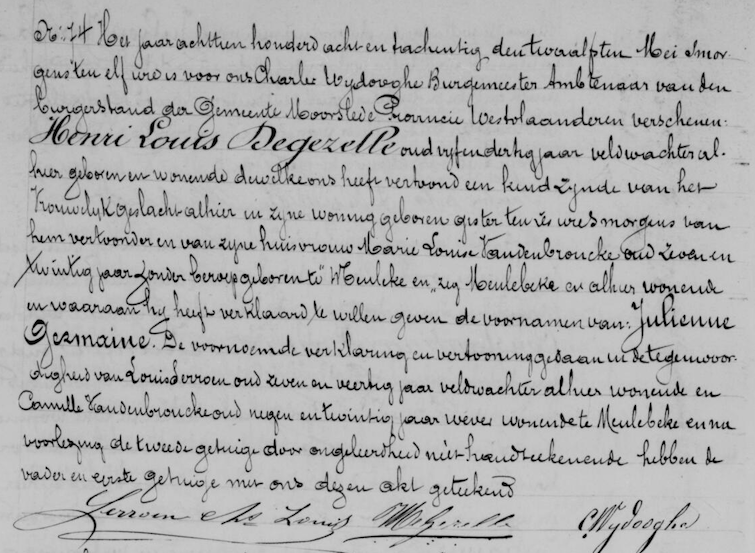 N: 74 Het jaar achttien honderd acht en tachentig den twaalfsten Mei smor-
gens ten elf ure is voor ons Charles Wydooghe Burgemeester Ambtenaar van den
burgerstand der Gemeente Moorslede Provincie Westvlaanderen verschenen:
Henri Louis Degezelle oud vyfendertig jaar veldwachter al-
hier geboren en wonende dewelke ons heeft vertoond een kind zynde van het
Vrouwelyk geslacht alhier in zyne woning geboren gister ten zes ure smorgens van
hem vertoonder en van zyne huisvrouw Marie Louise Vandenbroucke oud zeven en
twintig jaar zonder beroep geboren te "Meuleke en" zeg Meulebeke en alhier wonende
en waaraan hy heeft verklaard te willen geven de voornamen van: Julienne
Germaine. De voornoemde verklaring en vertooning gedaan in de tegenwoor-
digheid van Louis Serroen oud zeven en veertig jaar veldwachter alhier wonende en
Camille Vandenbroucke oud negen en twintig jaar wever wonende te Meulebeke en na
voorlezing de tweede getuige door ongeleerdheid niet handteekenende hebben de
vader en eerste getuige met ons dezen akt geteekend
Serroen Louis HDegezelle C. Wydooghe